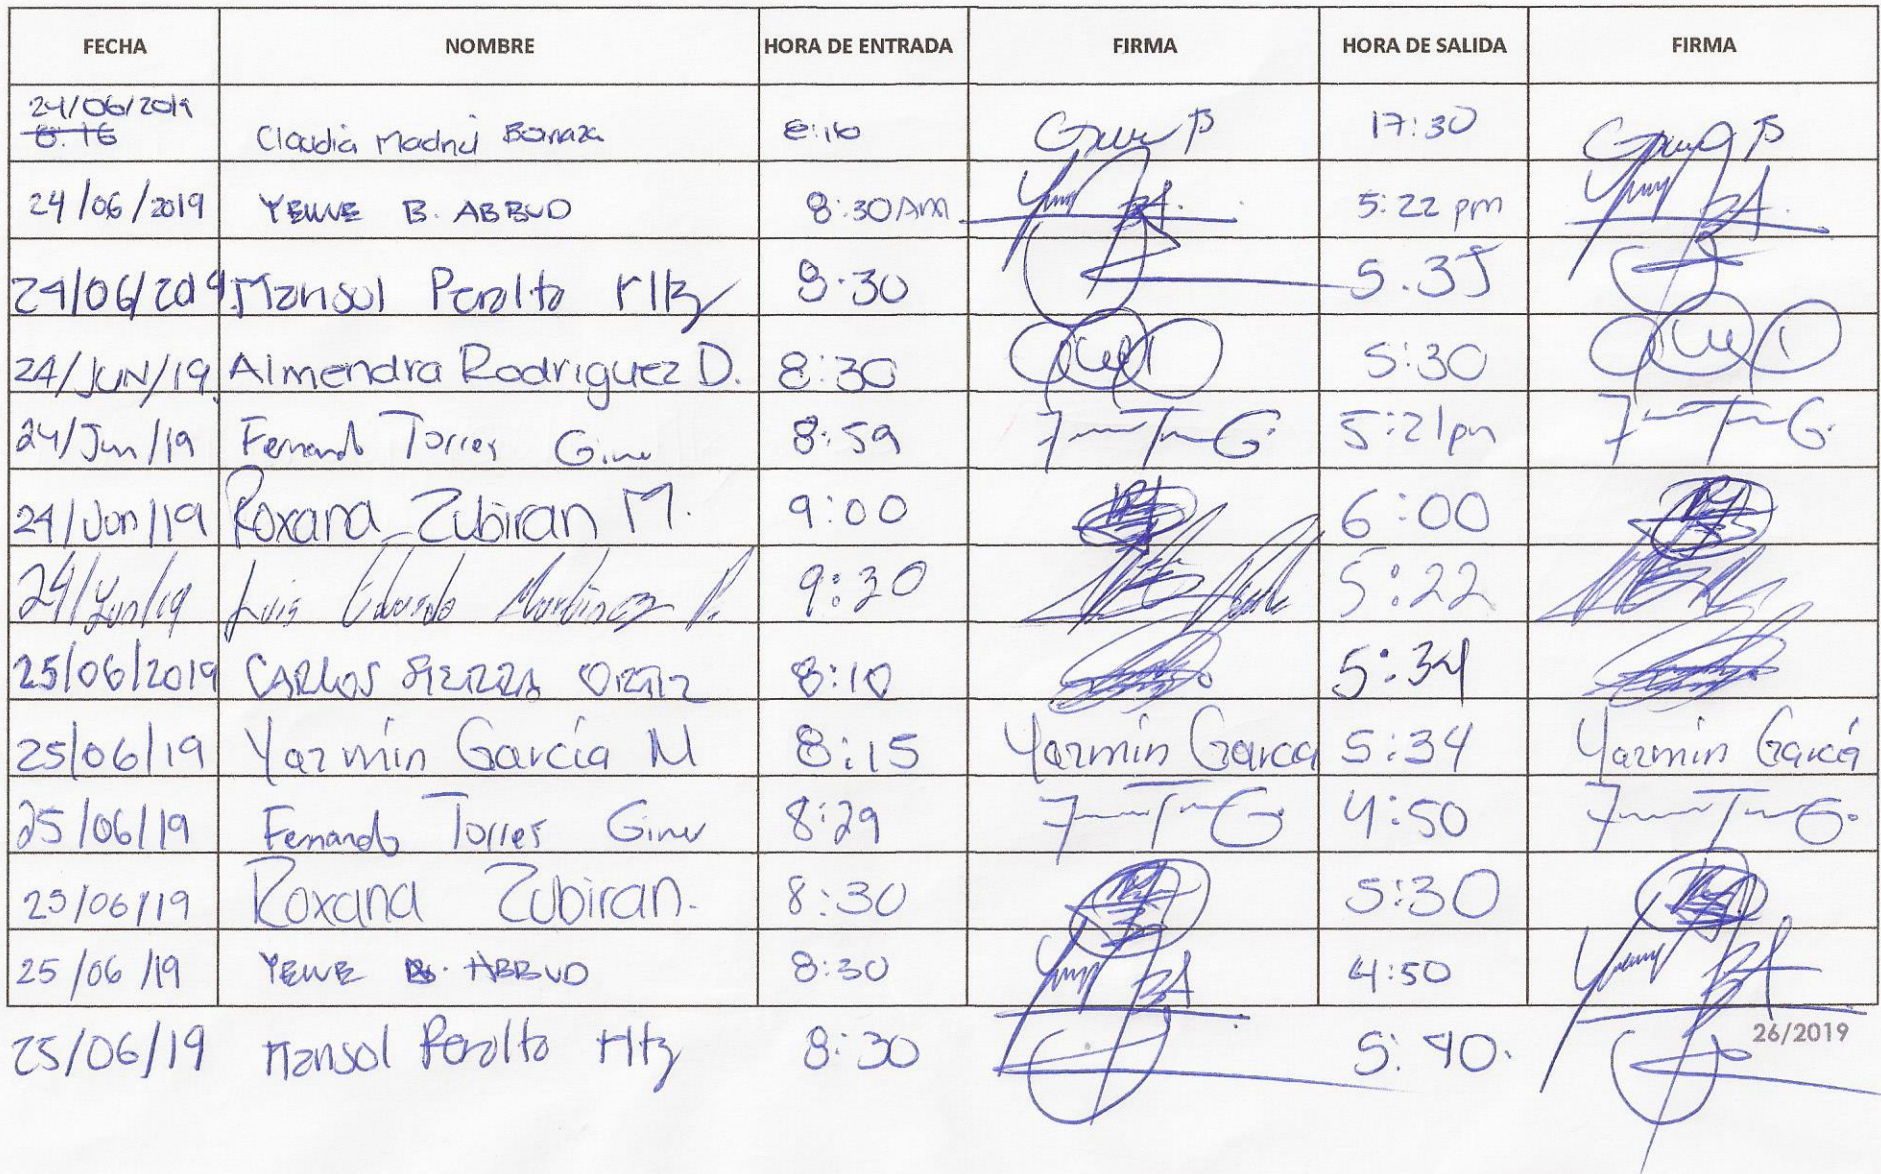 FECHA NOMBRE HORA DE ENTRADA FIRMA HORA DE SALIDA FIRMA
24/06/2019
8:16 Claudia Madrid Barraza 8:16 17:30
24/06/2019 YEUVE B. ABBUD 8:30 Am 5:22 pm
24/06/2019 Marisol Peralta Mtz 8:30 5.35
24/JUN/19 Almendra Rodriguez D. 8:30 5:30
24/Jun/19 Fernando Torres Giner 8:59 5:21pm
24/Jun/19 Roxana Zubiran M. 9:00 6:00
24/Jun/19 Luis Eduardo Martinez P. 9:30 5:22
25/06/2019 CARLOS SIERRA ORTIZ 8:10 5:34
25/06/19 Yazmín García M 8:15 Yazmín García 5:34 Yazmín García
25/06/19 Fernando Torres Giner 8:29 4:50
25/06/19 Roxana Zubiran. 8:30 5:30
25/06/19 YEUVE B. ABBUD 8:30 4:50
25/06/19 Marisol Peralta Mtz 8:30 5:40.
26/2019